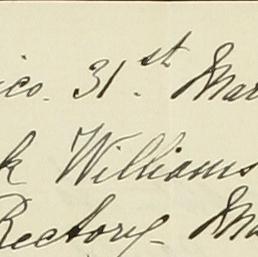 ico. 31st Mar
k Williams
Rectory Ma